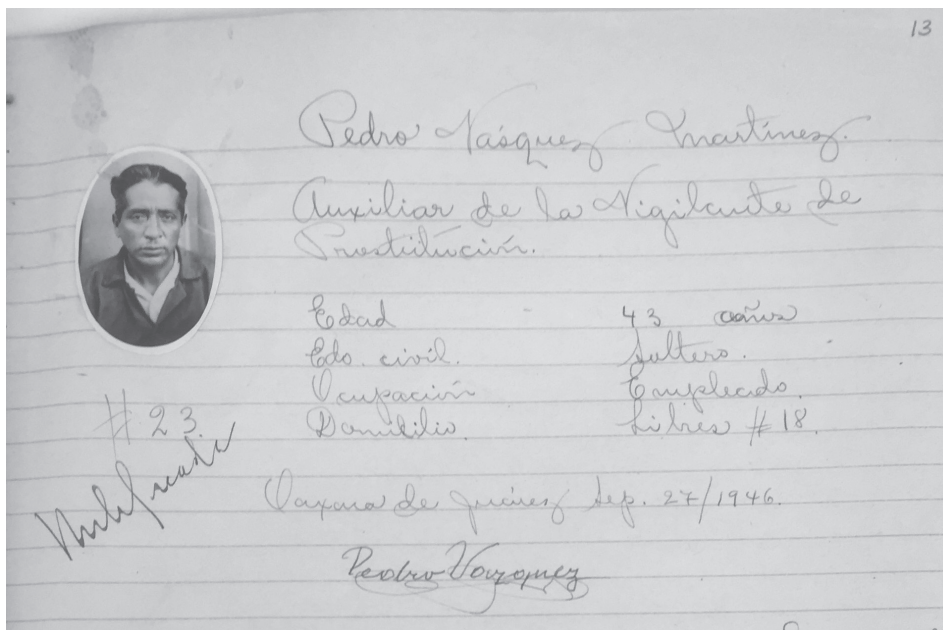 13
Pedro Vásquez Martínez.
Auxiliar de la Vigilante de
Prostitución.
Edad 43 años
Edo. civil. Soltero.
Ocupación Empleado.
Domicilio. Libres #18.
#23.
Oaxaca de Juárez Sep. 27/1946.
Pedro Vazquez